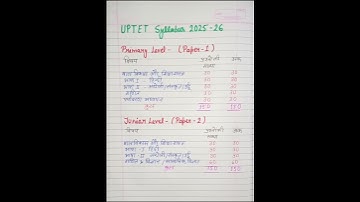 UPTET Syllabus 2025-26
Primary Level - (Paper-1)
विषय प्रश्नों की संख्या अंक
बाल विकास और शिक्षाशास्त्र 30 30
भाषा I हिन्दी 30 30
भाषा II अंग्रेजी/संस्कृत/उर्दू 30 30
गणित 30 30
पर्यावरण अध्ययन 30 30
कुल 150 150
Junior Level - (Paper-2)
विषय प्रश्नों की संख्या अंक
बाल विकास और शिक्षाशास्त्र 30 30
भाषा I हिन्दी 30 30
भाषा II अंग्रेजी/संस्कृत/उर्दू 30 30
गणित & विज्ञान / सामाजिक विज्ञान 60 60
कुल 150 150